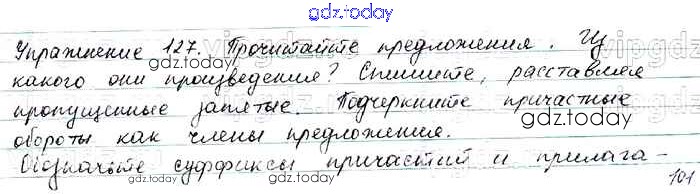 gdz.today
Упражнение 127. Прочитайте предложения. Из
какого они произведения? Спишите, расставляя
gdz.today
gdz.today
пропущенные запятые. Подчеркните причастные
обороты как члены предложения.
gdz.today
Обозначьте суффиксы причастий и прилага-
gdz.today
101